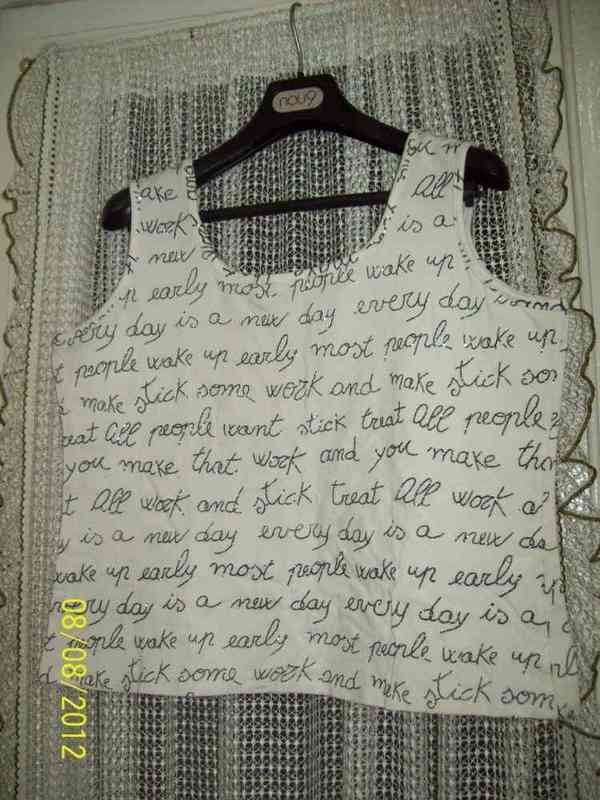 nou9
ou
ake
All
work
is a
new
early most people wake up
every day is a new day every day
people wake up early most people wake up
make stick some work and make stick so
eat all people want stick treat All people
you make that work and you make tha
t All work and stick treat All work a
y is a new day every day is a new da
wake up early most people wake up early up
ery day is a new day every day is a
t people wake up early most people wake up
make stick some work and make stick som
08/08/2012